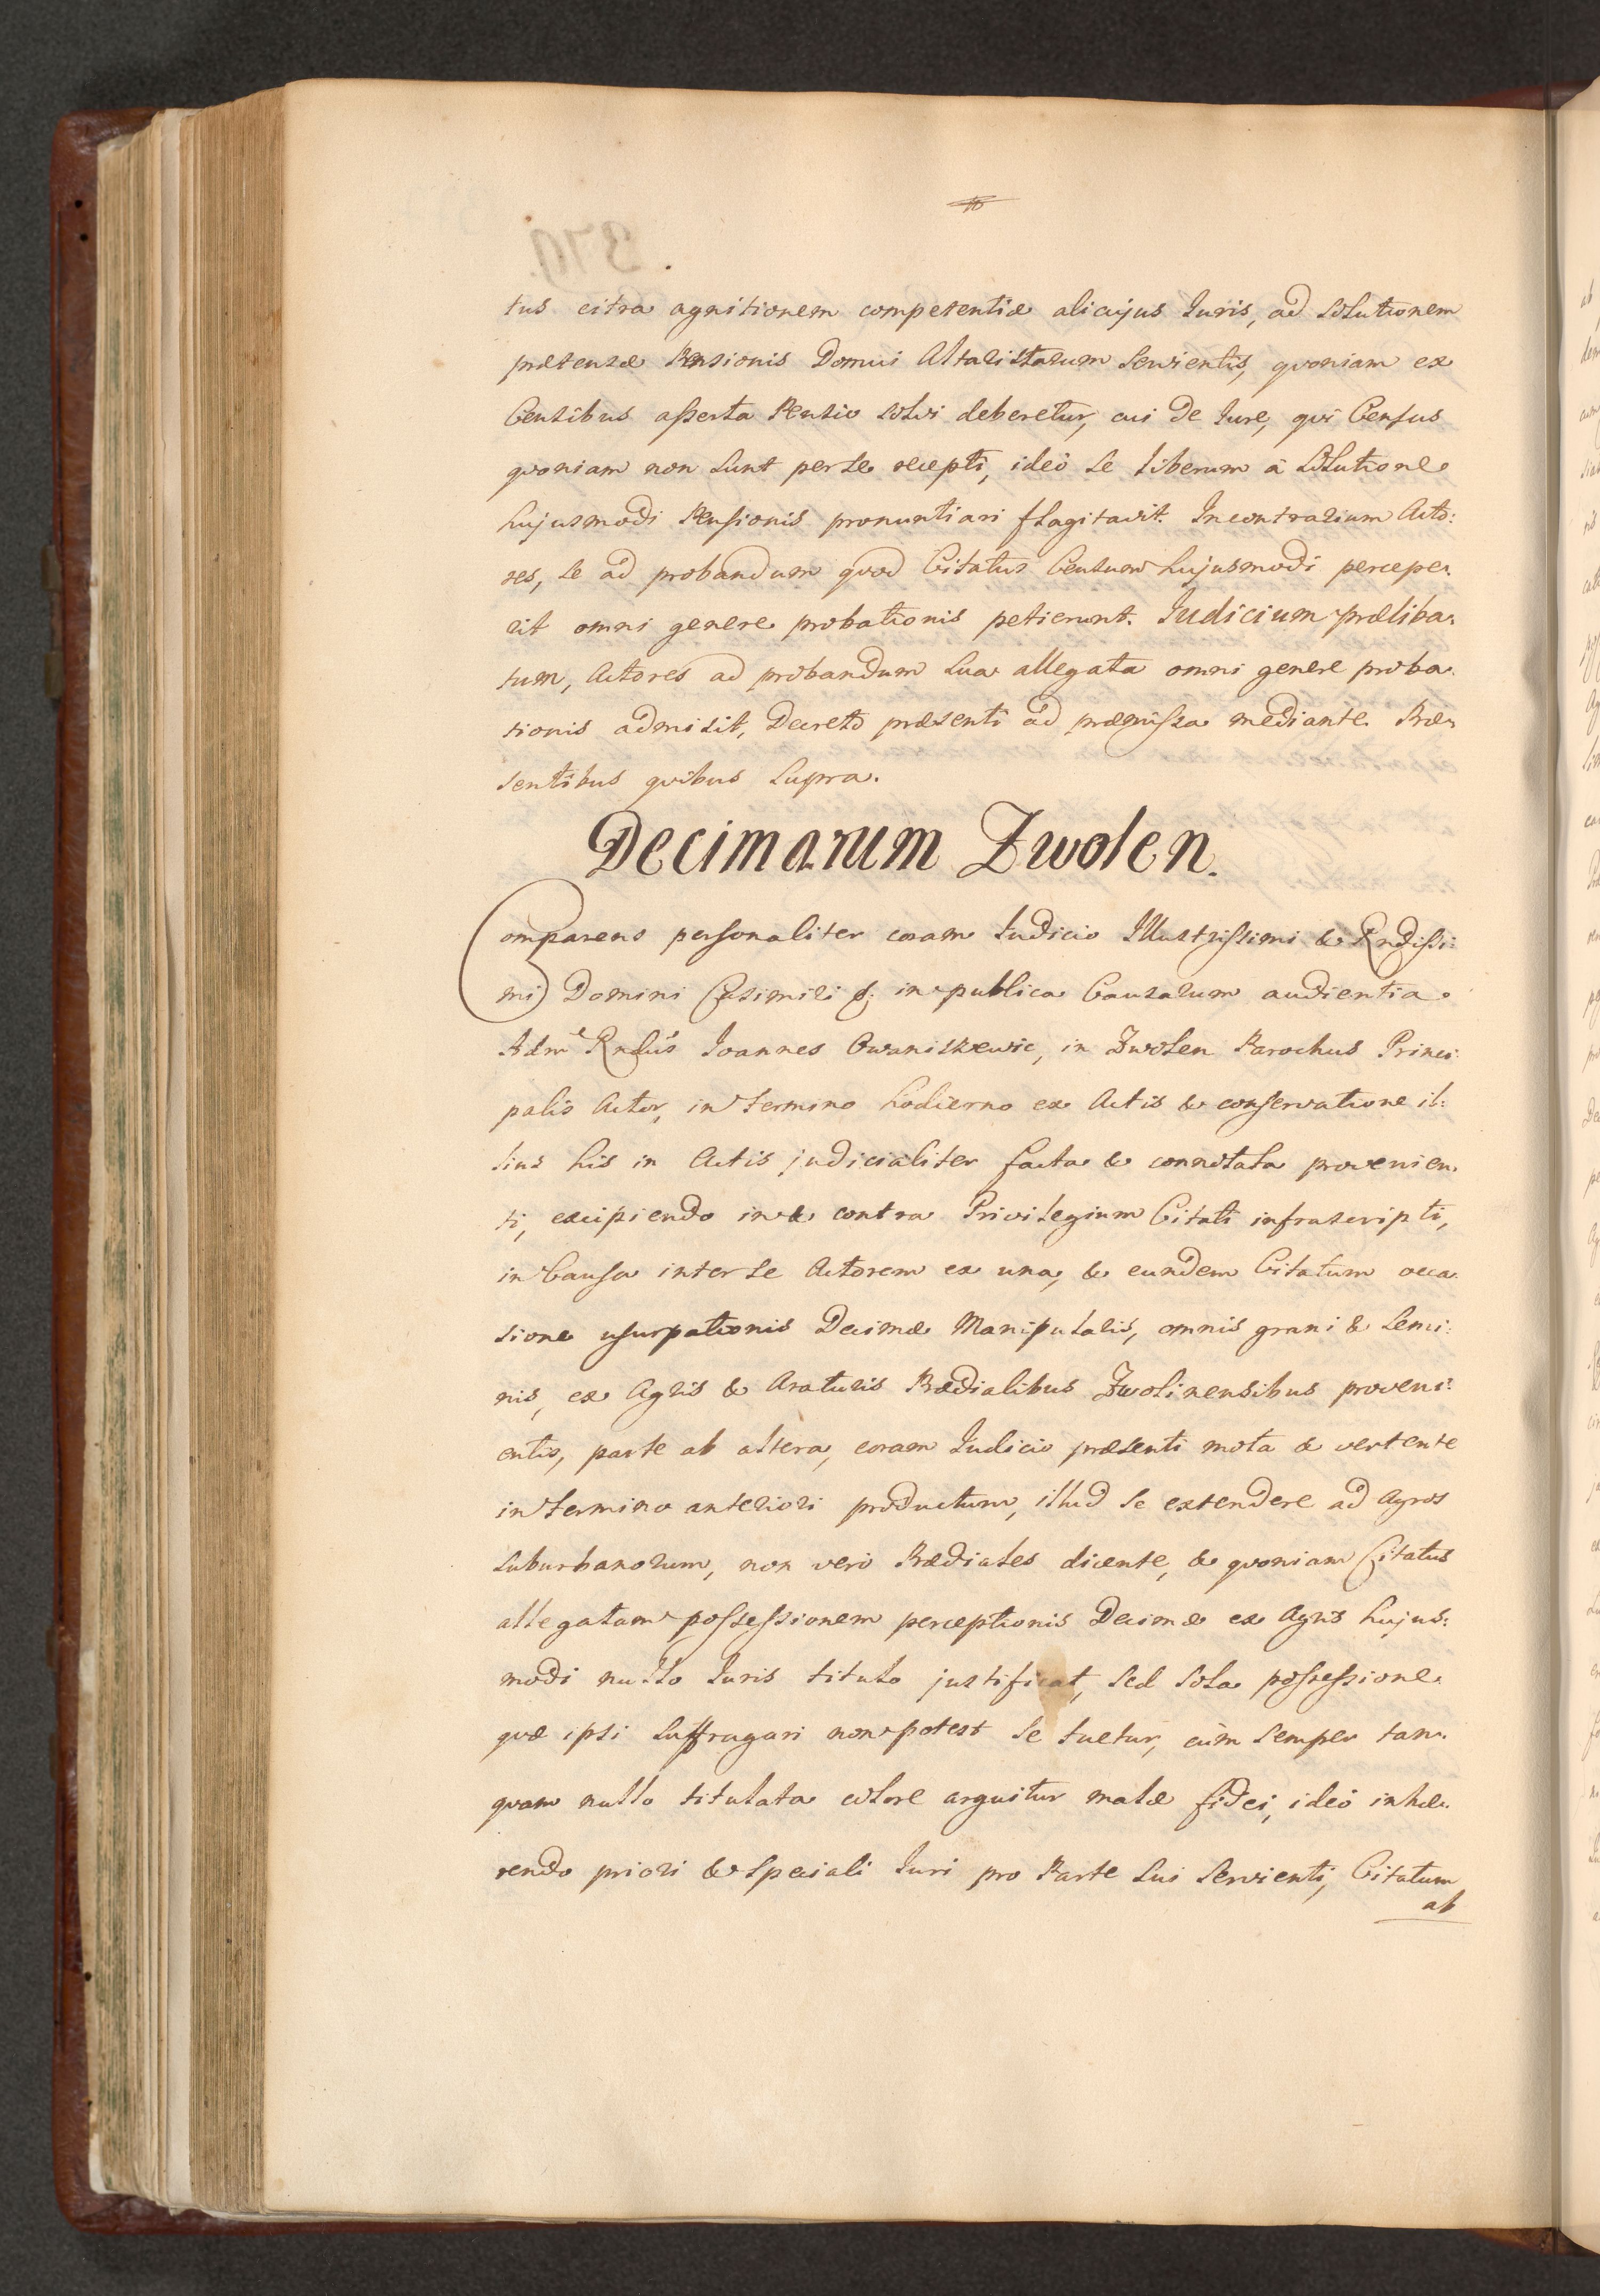 tus citra agnitionem competentiæ alicujus Iuris, ad solutionem
prætensæ Pensionis Domui Altaristarum servientis, qvoniam ex
Censibus asserta Pensio solvi deberetur, cui de Iure, qvi Census
qvoniam non sunt per se recepti, ideò se liberum à solutione
hujusmodi Pensionis pronuntiari flagitavit. In contrarium Acto:
res, se ad probandum qvod Citatus Censum hujusmodi percepe:
rit omni genere probationis petierunt. Iudicium præliba:
tum, Actores ad probandum sua allegata omni genere proba:
tionis admisit, Decreto præsenti ad præmissa mediante. Præ:
sentibus qvibus supra.
Decimarum Zwolen.
Comparens personaliter coram Iudicio Illustrissimi & Rndissi:
mi Domini Casimiri &; in publica Causarum audientia
Adm Rndus Ioannes Owaniszewic, in Zwolen Parochus Princi:
palis Actor, in termino hodierno ex Actis & conservatione il:
lius his in Actis judicialiter facta & connotata provenien:
ti, excipiendo in & contra Privilegium Citati infrascripti,
in Causa inter se Actorem ex una, & eundem Citatum occa:
sione usurpationis Decimæ Manipularis, omnis grani & semi:
nis, ex Agris & Araturis Prædialibus Zwolinensibus proveni:
entis, parte ab altera, coram Iudicio præsenti mota & vertente
in termino anteriori productum, illud se extendere ad Agros
suburbanorum, non verò Prædiales dicente, & qvoniam Citatus
allegatam possessionem perceptionis Decimæ ex Agris hujus:
modi nullo Iuris titulo justificat, sed sola possessione
qvæ ipsi suffragari non potest se tuetur, cùm semper tan:
qvam nullo titulata colore arguitur malæ fidei, ideò inhæ:
rendo priori & speciali Iuri pro Parte sui servienti, Citatum
ab